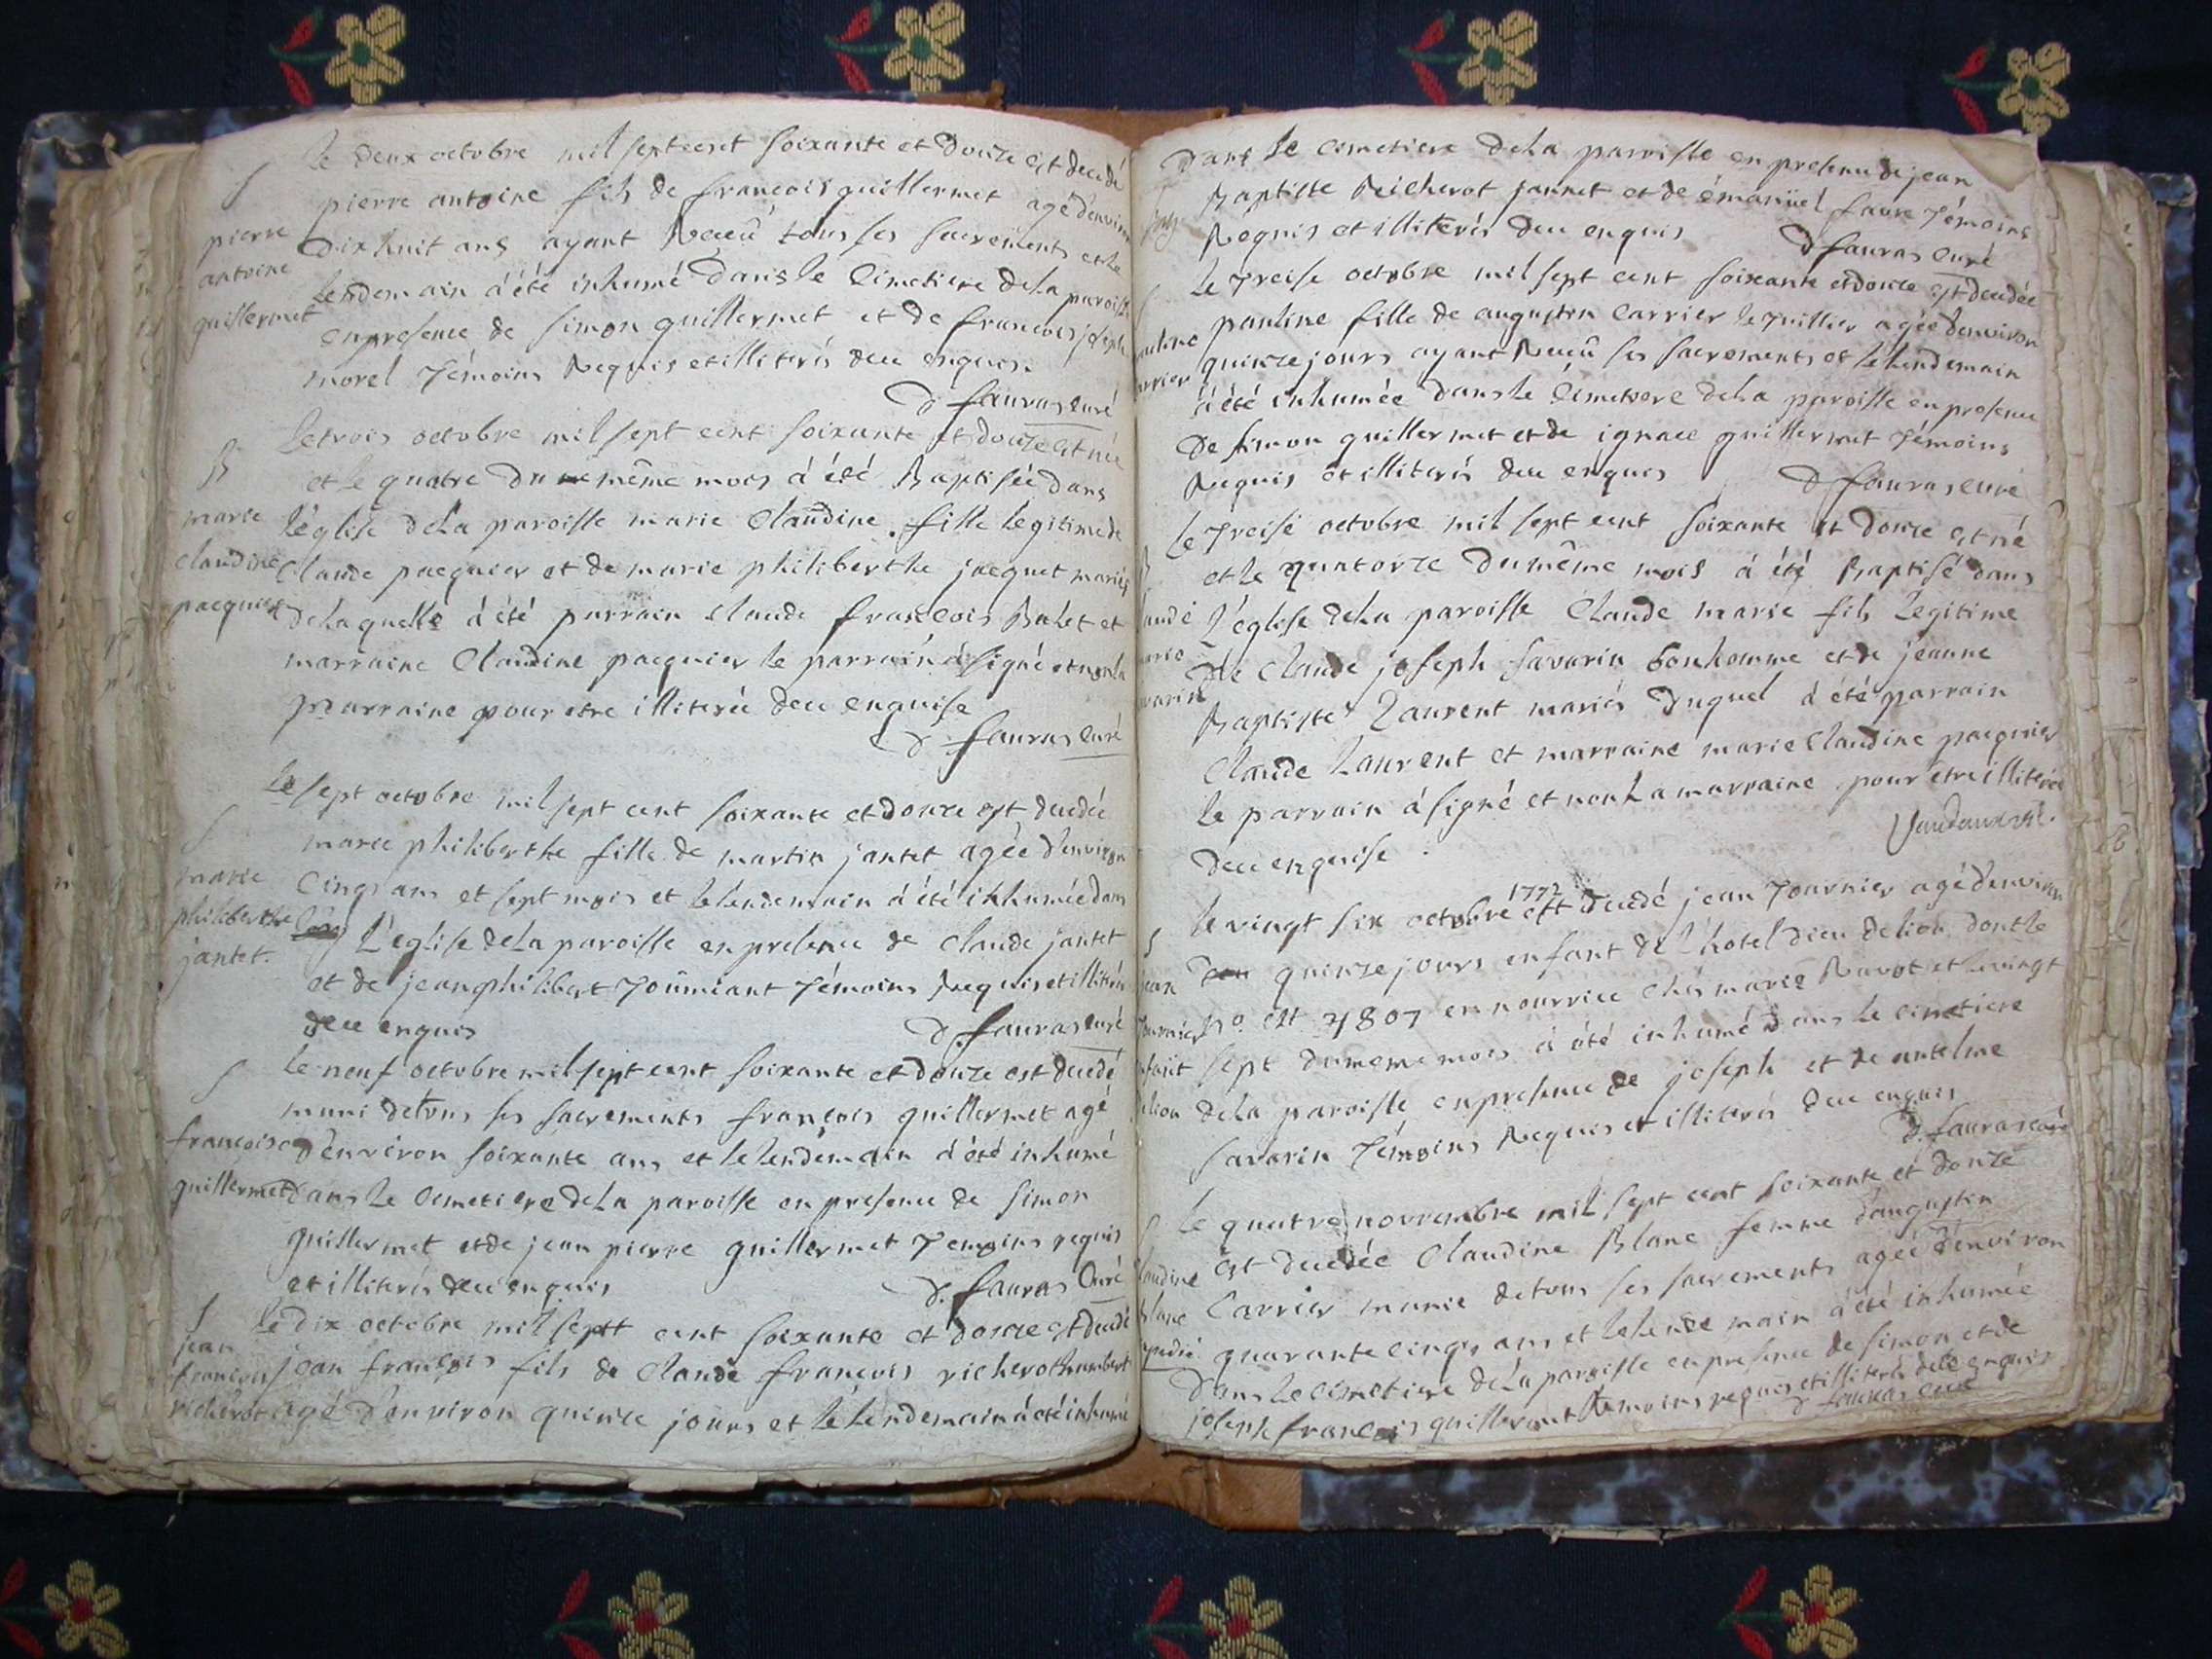 le deux octobre mil sept cent soixante et douze est decedé
S
pierre antoine fils de francois guillermet agé d'environ
pierre
dix huit ans ayant Receû tous les sacrements et le
antoine
lendemain à été inhumé dans le Cimetiere de la paroisse
guillermet
en presence de simon guillermet et de francois joseph
morel Témoins Requis et illiterés deu enquis.
D fauras curé
le trois octobre mil sept cent soixante et douze est née
B
et le quatre du même mois à été Baptisée dans
marie
l'église de la paroisse marie Claudine fille legitime de
claudine
Claude pacquier et de marie philiberthe jacquet mariés
pacquier
de laquelle à été parrain claude francois Balet et
marraine Claudine pacquier le parrain à signé et non la
marraine pour etre illiterée deu enquise
D fauras curé
le sept octobre mil sept cent soixante et douze est decedée
S
marie philiberthe fille de martin jantet agée d'environ
marie
Cinqs ans et sept mois et le lendemain à été inhumée dans
philiberthe
L'eglise de la paroisse en presence de Claude jantet
jantet.
et de jean philibert Témoins Requis et illiterés
deu enquis
D. fauras curé
le neuf octobre mil sept cent soixante et douze est decedé
S
muni de tous les sacrements françois guillermet agé
francoise
d'environ soixante ans et le lendemain à été inhumé
guillermet
dans le Cimetiere de la paroisse en presence de simon
guillermet et de jean pierre guillermet Temoins requis
et illiterés deu enquis
D. fauras Curé
S
le dix octobre mil sept cent soixante et douze est decedé
jean
francois
jean françois fils de Claude francois richerot humbert
richerot
agé d'environ quinze jours et le lendemain à été inhumé
dans le cimetiere de la paroisse en presence de jean
Baptiste Richerot jannet et de émanüel favre Témoins
Requis et illiterés deu enquis
D fauras curé
le Treise octobre mil sept cent soixante et douze est decedée
pauline fille de augustin Carrier le Tuillier agée d'environ
auline
quinze jours ayant Receû les sacrements et le lendemain
arrier
à été inhumée dans le Cimetiere de la paroisse en presence
de simon guillermet et de ignace guillermet Témoins
Requis et illiterés deu enquis
D fauras curé
le Treise octobre mil sept cent soixante et douze est né
et le quatorze du même mois à été Baptisé dans
laude
L'église de la paroisse Claude marie fils legitime
arie
de Claude joseph savarin bonhomme et de jeanne
varin
Baptiste Laurent mariés duquel à été parrain
Claude Laurent et marraine marie Claudine pacquier
le parrain à signé et non La marraine pour etre illiterée
deu enquise
1772
le vingt six octobre est decedé jean Tournier agé d'environ
S
quinze jours enfant de L'hotel dieu de lion dont le
jean
N.o est 7807 en nourrice chés marie Ravot et le vingt
Tournier
sept du meme mois à été inhumé dans le cimetiere
nfant
de la paroisse en presence de joseph et de antelme
delion
savarin Témoins Requis et illiterés deu enquis
D. fauras curé
le quatre novembre mil sept cent soixante et douze
S
est decedée Claudine Blanc femme d'augustin
laudine
Carrier munie de tous les sacrements agée d'environ
Blanc
quarante cinqs ans et le lendemain à été inhumée
dans le cimetiere de la paroisse en presence de simon et de
joseph francois guillermet Témoins requis et illiterés deu enquis
D fauras curé